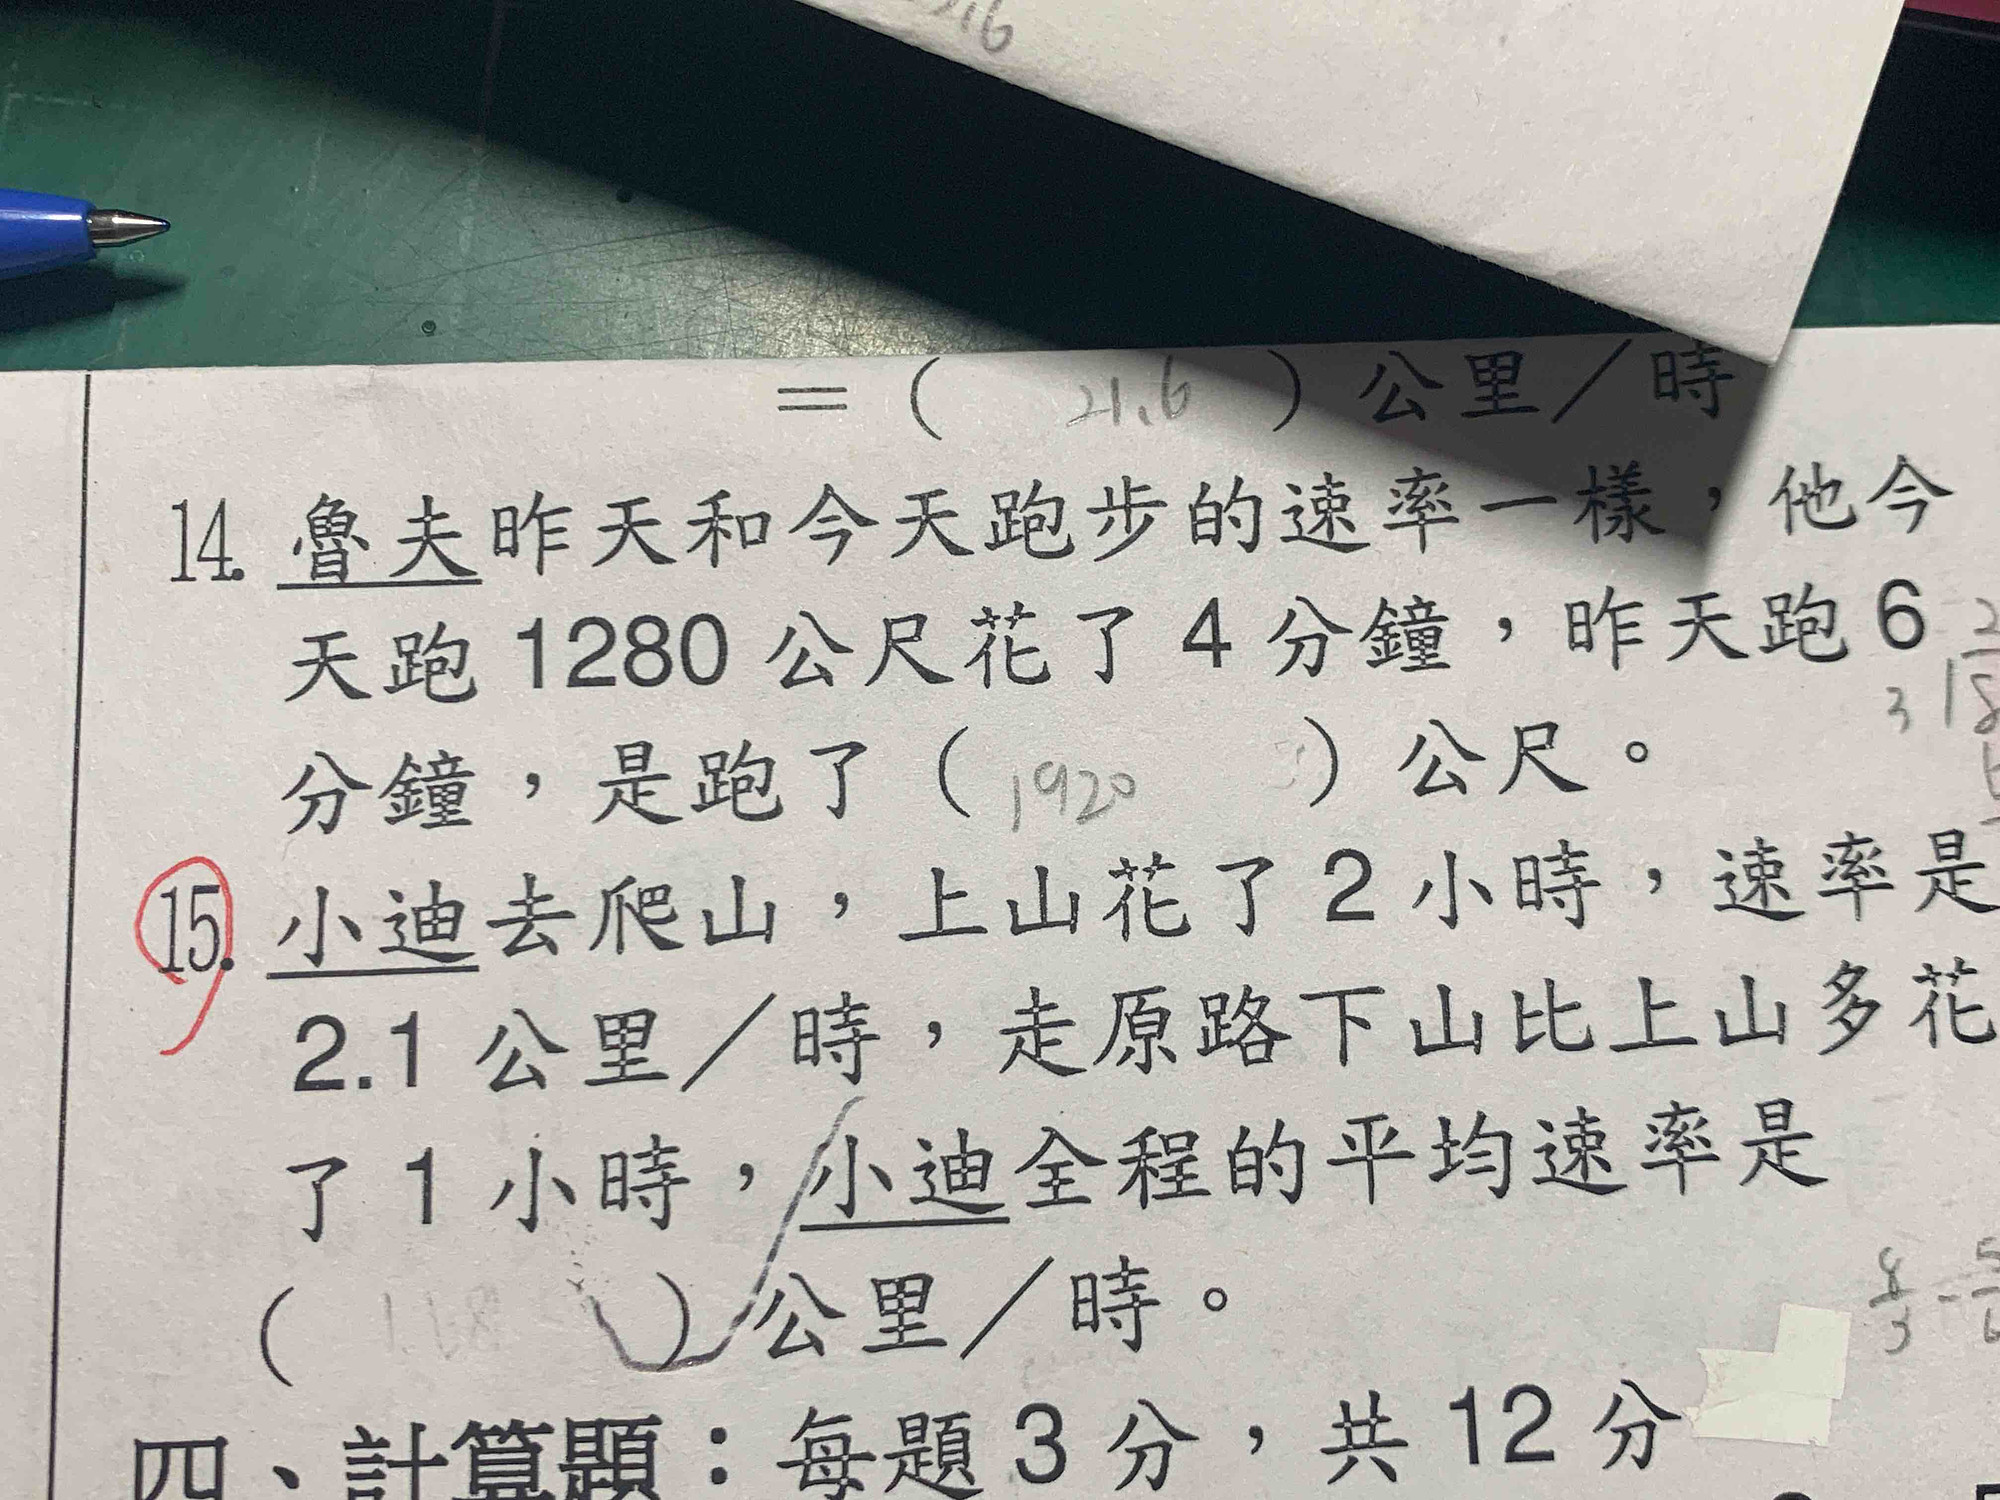 =( 21.6 )公里/時
14. 魯夫昨天和今天跑步的速率一樣,他今
天跑 1280 公尺花了 4 分鐘,昨天跑 6
分鐘,是跑了( 1920 )公尺。
15. 小迪去爬山,上山花了 2 小時,速率是
2.1 公里/時,走原路下山比上山多花
了 1 小時,小迪全程的平均速率是
( )公里/時。
四、計算題:每題 3 分,共 12 分